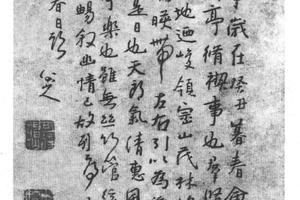 歲在癸丑暮春會
亭脩禊事也羣賢
地迺峻領崇山茂林
暎帶左右引以為
是日也天朗氣清惠風
可樂也雖無絲竹管
暢敘幽情已故列序
日
八大山人